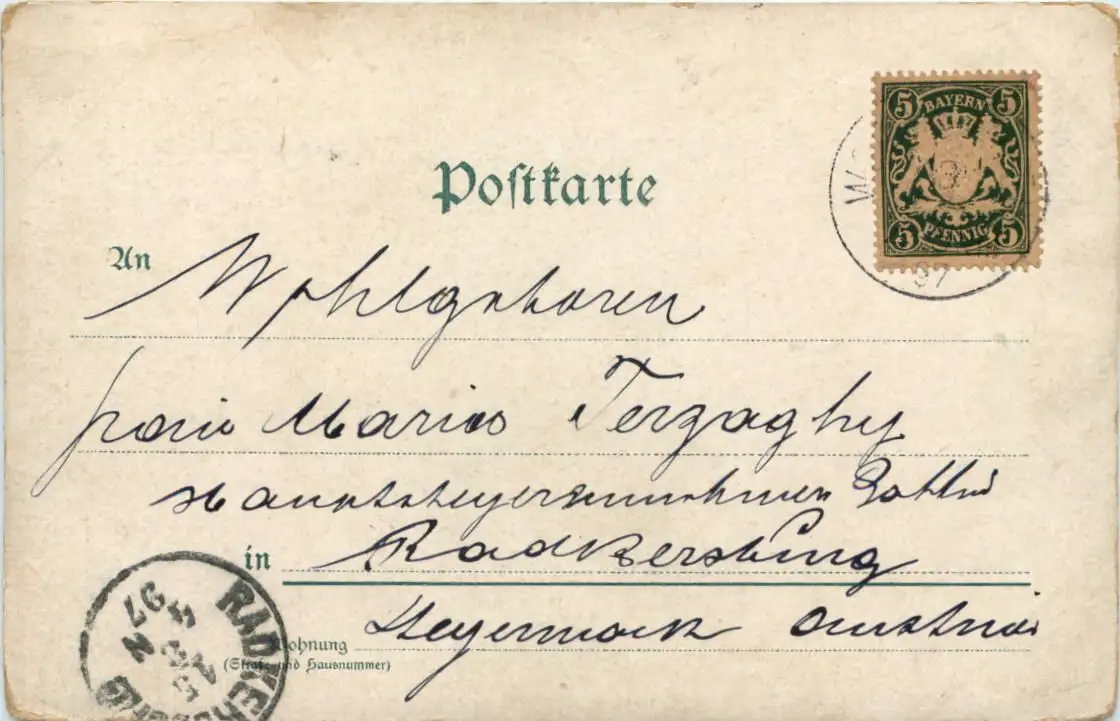 5 BAYERN 5
5 PFENNIG 5
97
Postkarte
An Wohlgeboren
Frau Maria Terzaghy
Hauptsteyereinnehmers Gattin
in Radkersburg
Steyermark Austria
Wohnung
(Straße und Hausnummer)
RADKERSBURG
97